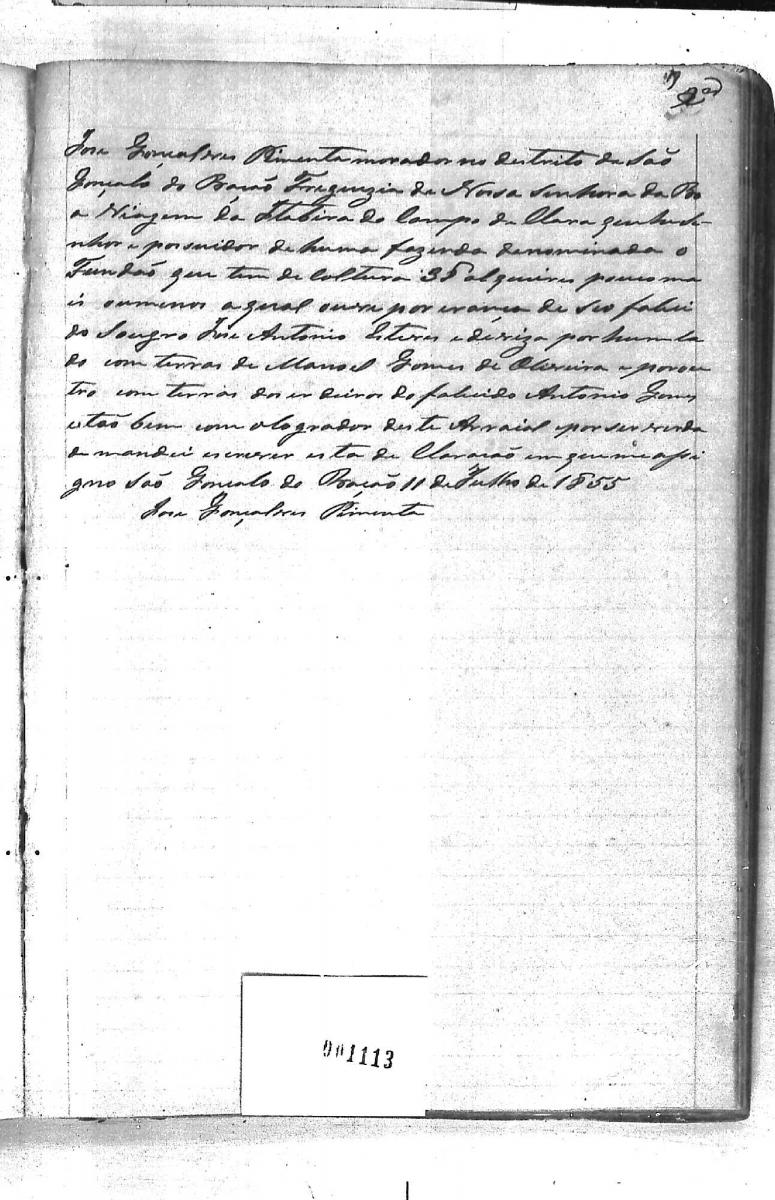 Jose Gonçalves Pimenta morador no destrito de Saõ
Gonçalo do Bacaõ Freguezia de Nossa Senhora da Bo
a Viagem da Itabira do Campo de Clara que he se
nhor e posuidor de huma fazenda denominada o
Fundaõ que tem de coltura 35 alqueires pouco ma
is oumenos a qual ouve por erança de seo faleci
do Sougro Jose Antonio Esteves e deviza por hum la
do com terras de Manoel Gomes de Oliveira e porou
tro com terras dos erdeiros do falecido Antonio Gomes
e taõ bem com o logrador deste Arraial e por ser verda
de mandei escrever esta de Claracaõ em que me assi
gno Saõ Gonçalo do Bacaõ 11 de Julho de 1855
Jose Gonçalves Pimenta
001113